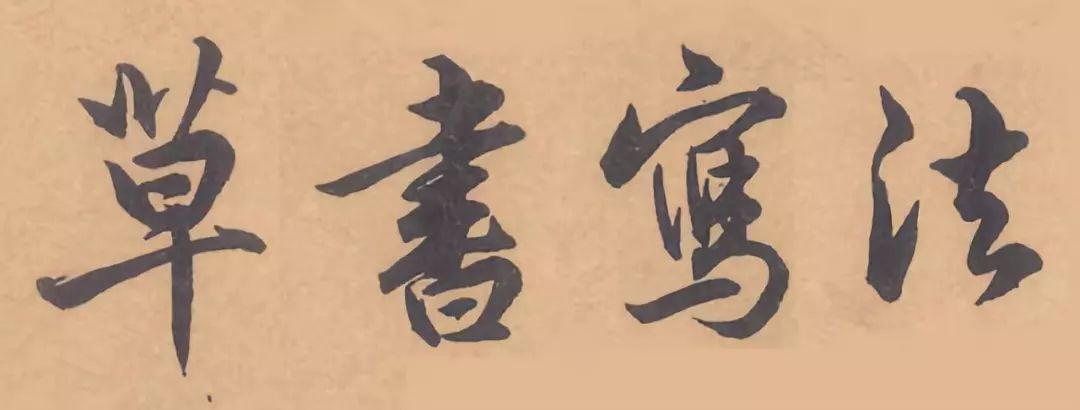 草書寫法